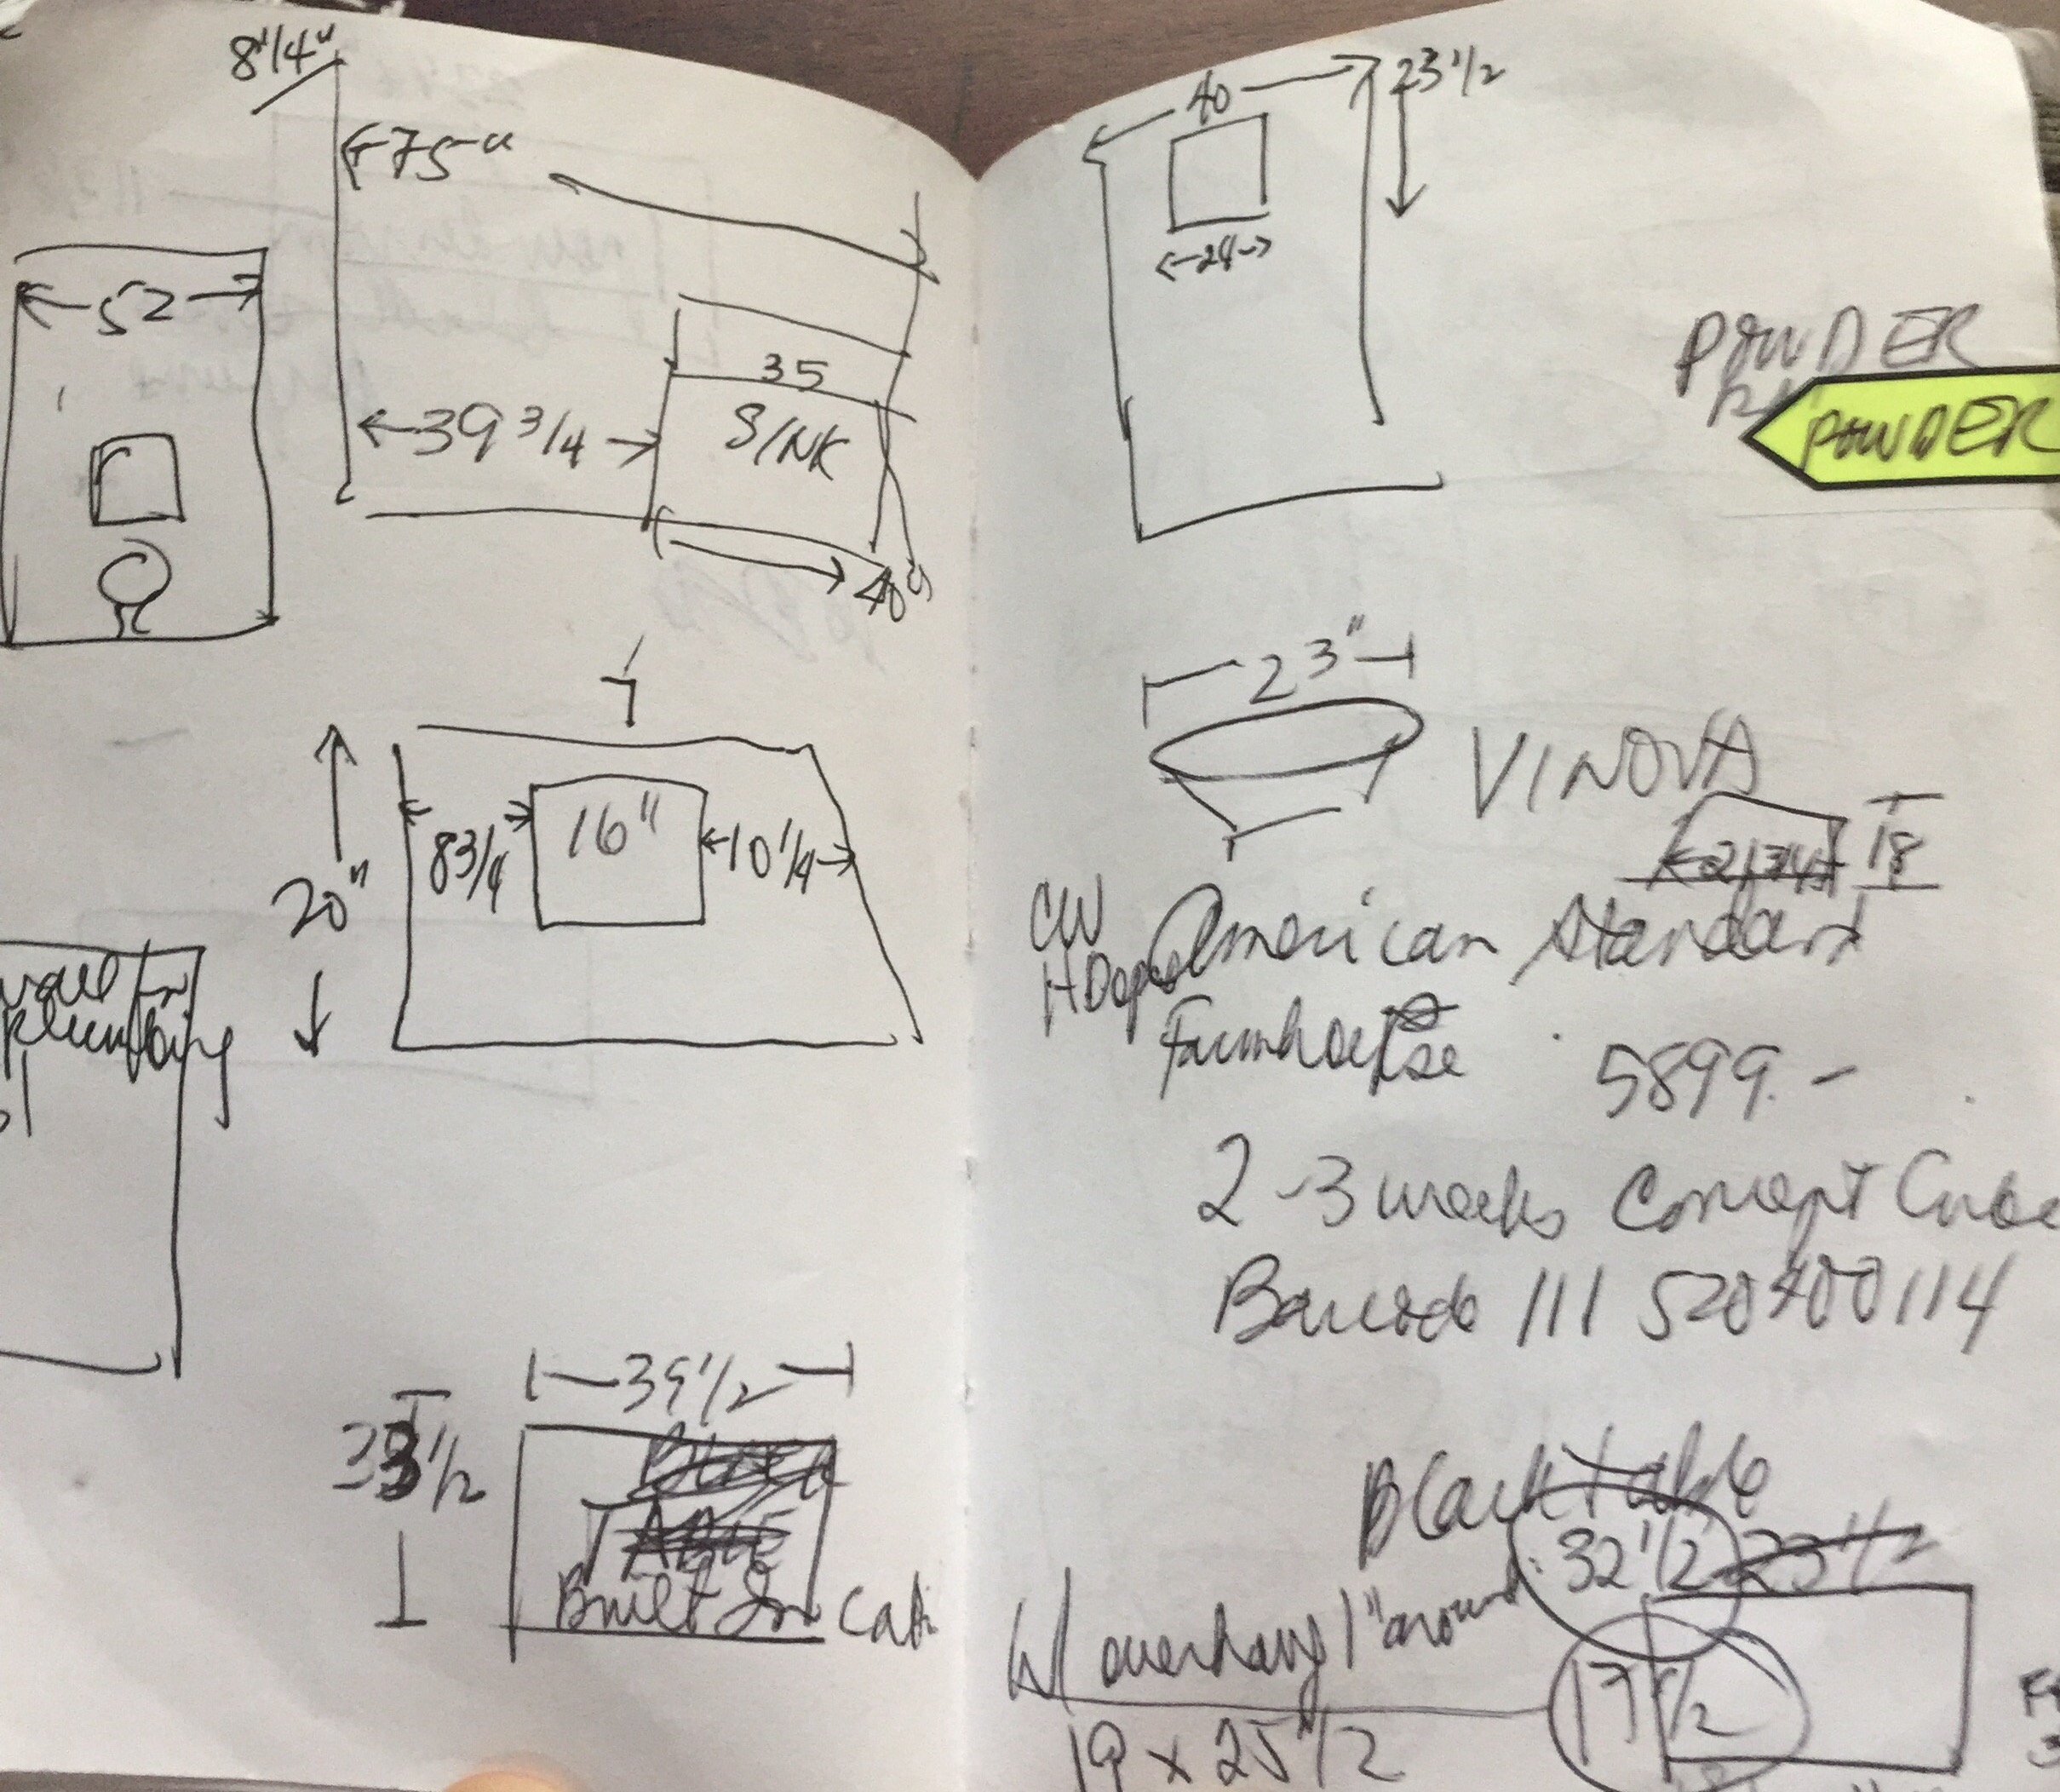 8 1/4"
75"
52
35
SINK
39 3/4
40
16"
8 3/4
10 1/4
20"
plumbing
39 1/2
1/2
Built In Cab
40
23 1/2
24
POWDER
POWDER
23"
VINOVA
18
American Standard
Farmhouse
5899.-
2-3 weeks Concept Cube
Barcode 111 520400114
Black table
32 1/2 23 1/2
W/ overhang 1" around
17 1/2
19 x 25 1/2